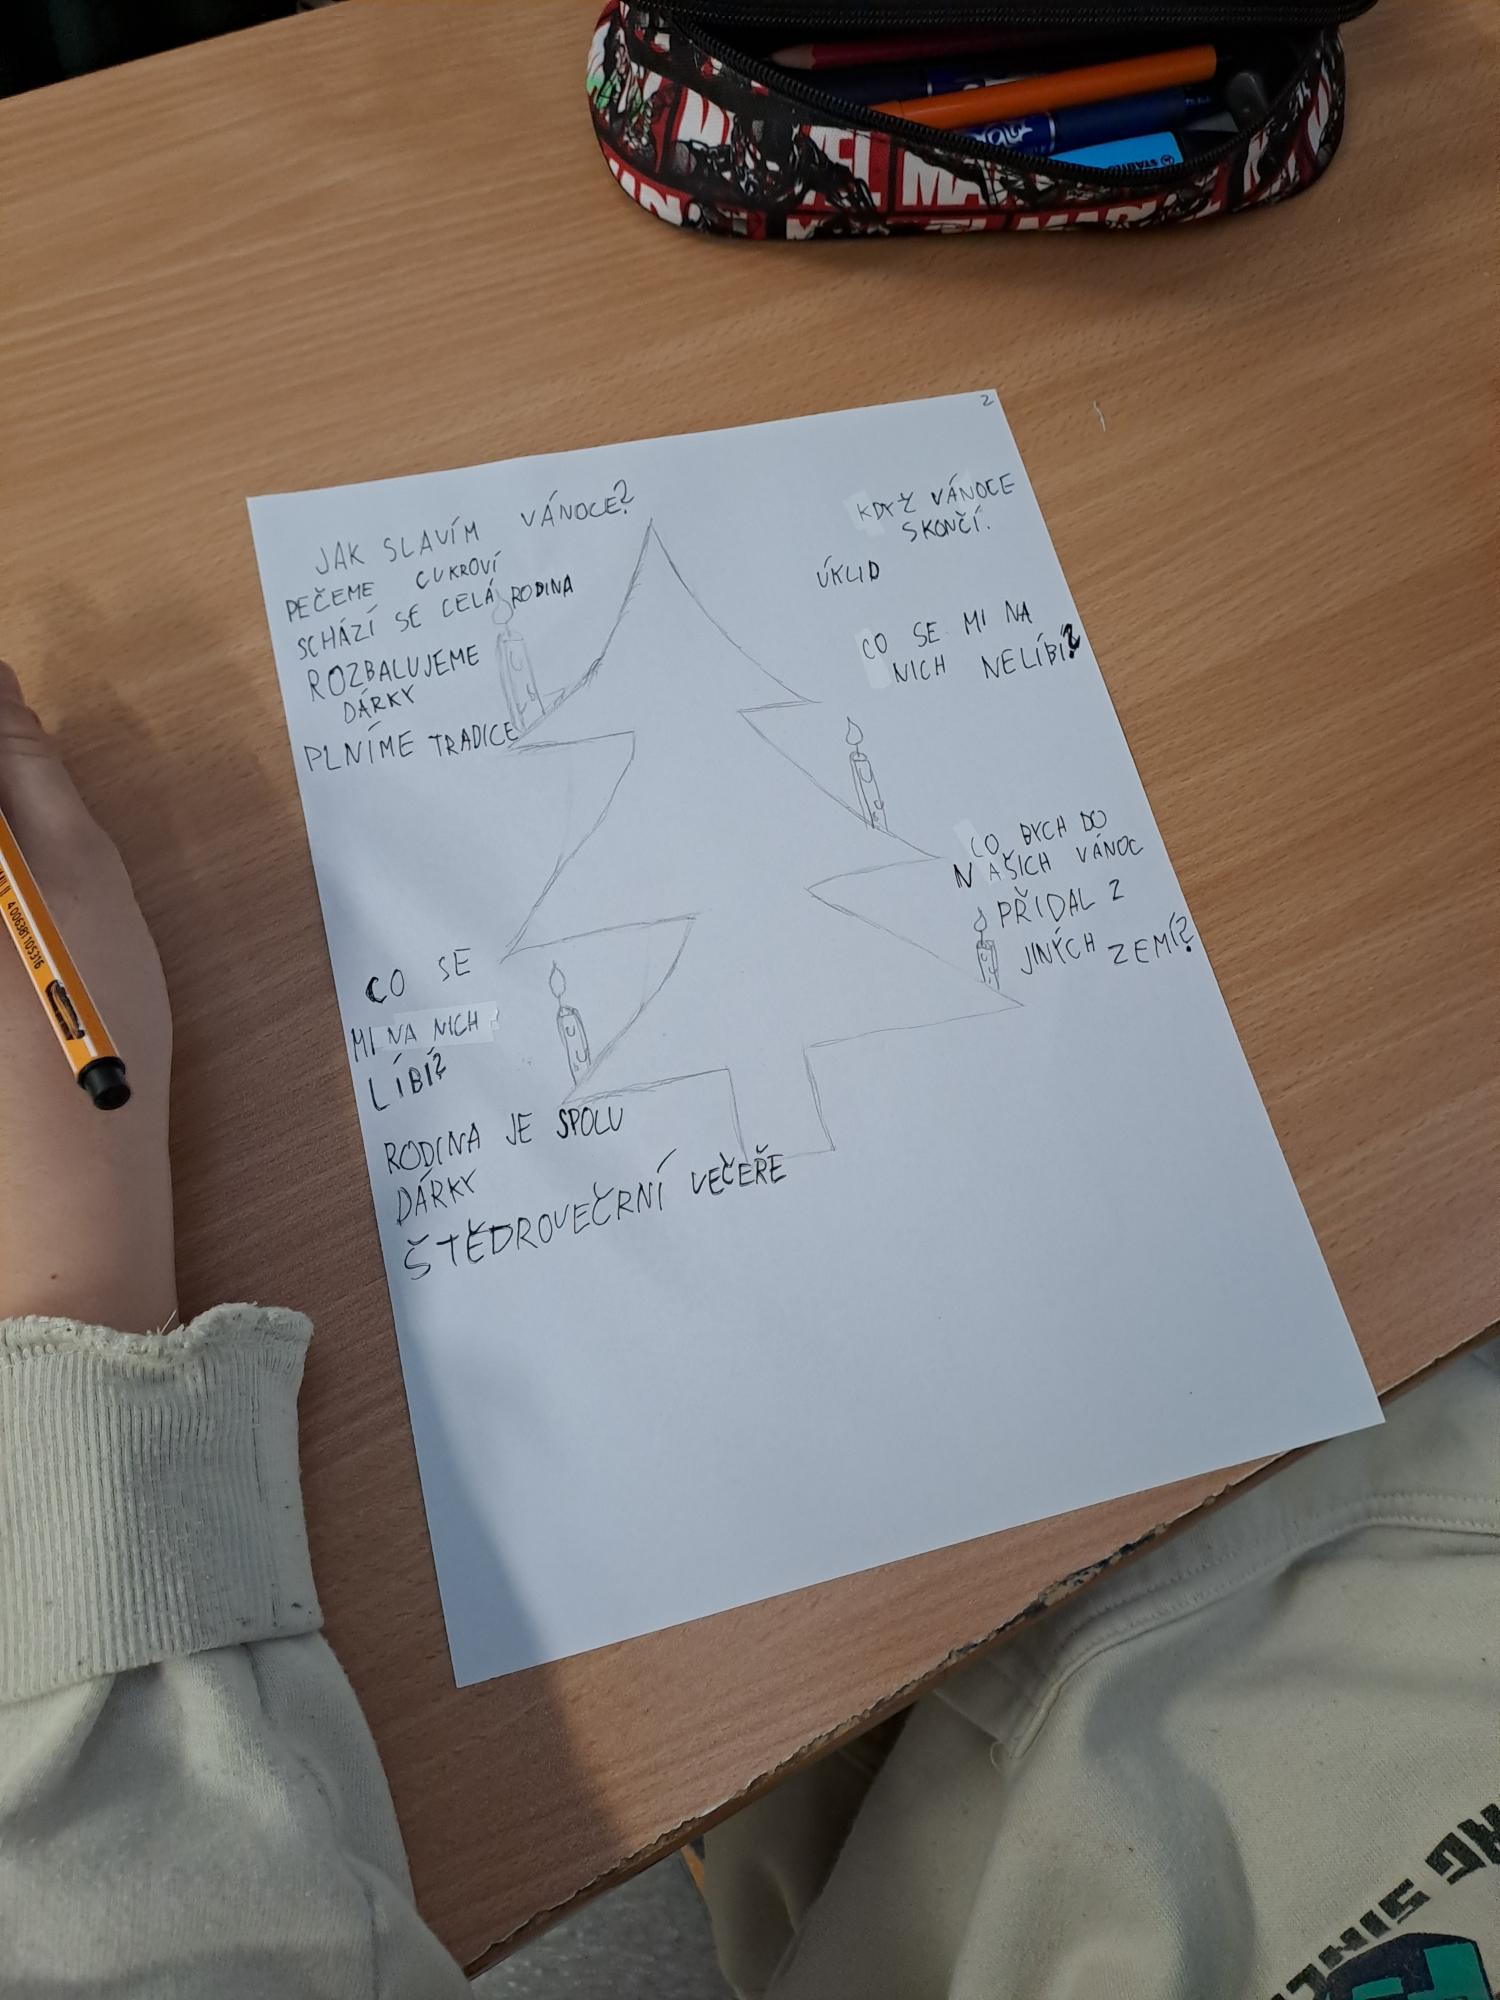 MARVEL MARVEL
STABILO
2
JAK SLAVÍM VÁNOCE?
PEČEME CUKROVÍ
SCHÁZÍ SE CELÁ RODINA
ROZBALUJEME
DÁRKY
PLNÍME TRADICE
CO SE
MI NA NICH
LÍBÍ?
RODINA JE SPOLU
DÁRKY
ŠTĚDROVEČRNÍ VEČEŘE
KDYŽ VÁNOCE
SKONČÍ.
ÚKLID
CO SE MI NA
NICH NELÍBÍ?
CO BYCH DO
NAŠICH VÁNOC
PŘIDAL Z
JINÝCH ZEMÍ?
4006381105316